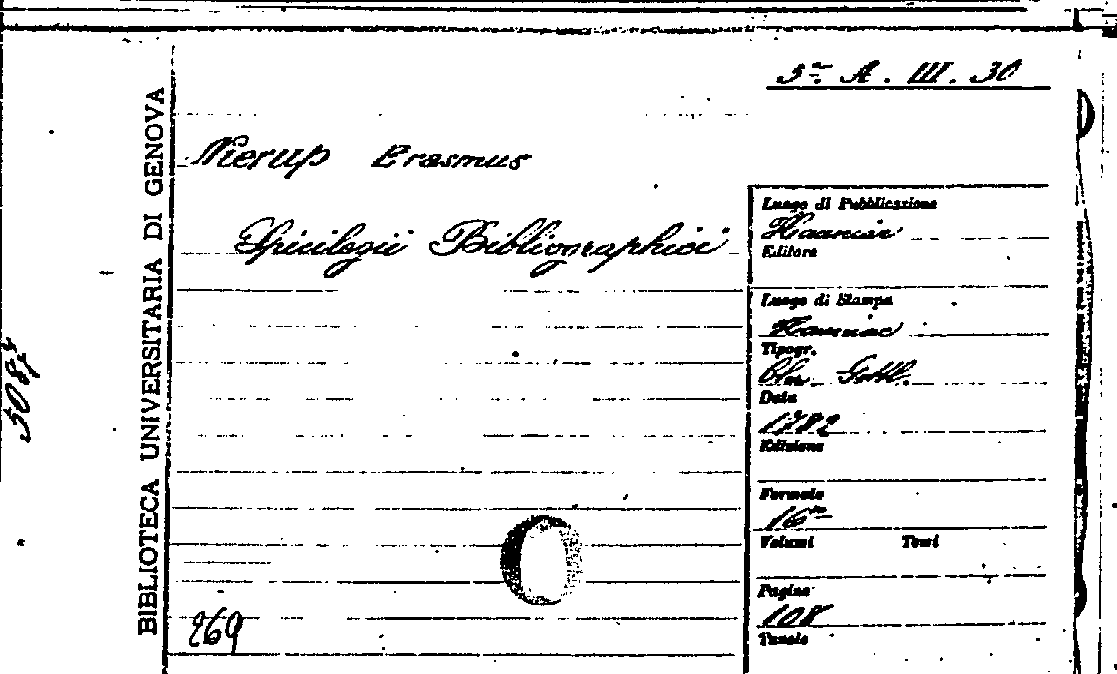 3ª A. III. 30
BIBLIOTECA UNIVERSITARIA DI GENOVA
Nierup Erasmus
Spicilegii Bibliographici
Luogo di Pubblicazione
Hauniae
Editore
Luogo di Stampa
Hauniae
Tipogr.
Gottl.
Data
1782
Edizione
Formato
16º
Volumi Tomi
Pagine
108
Tavole
269